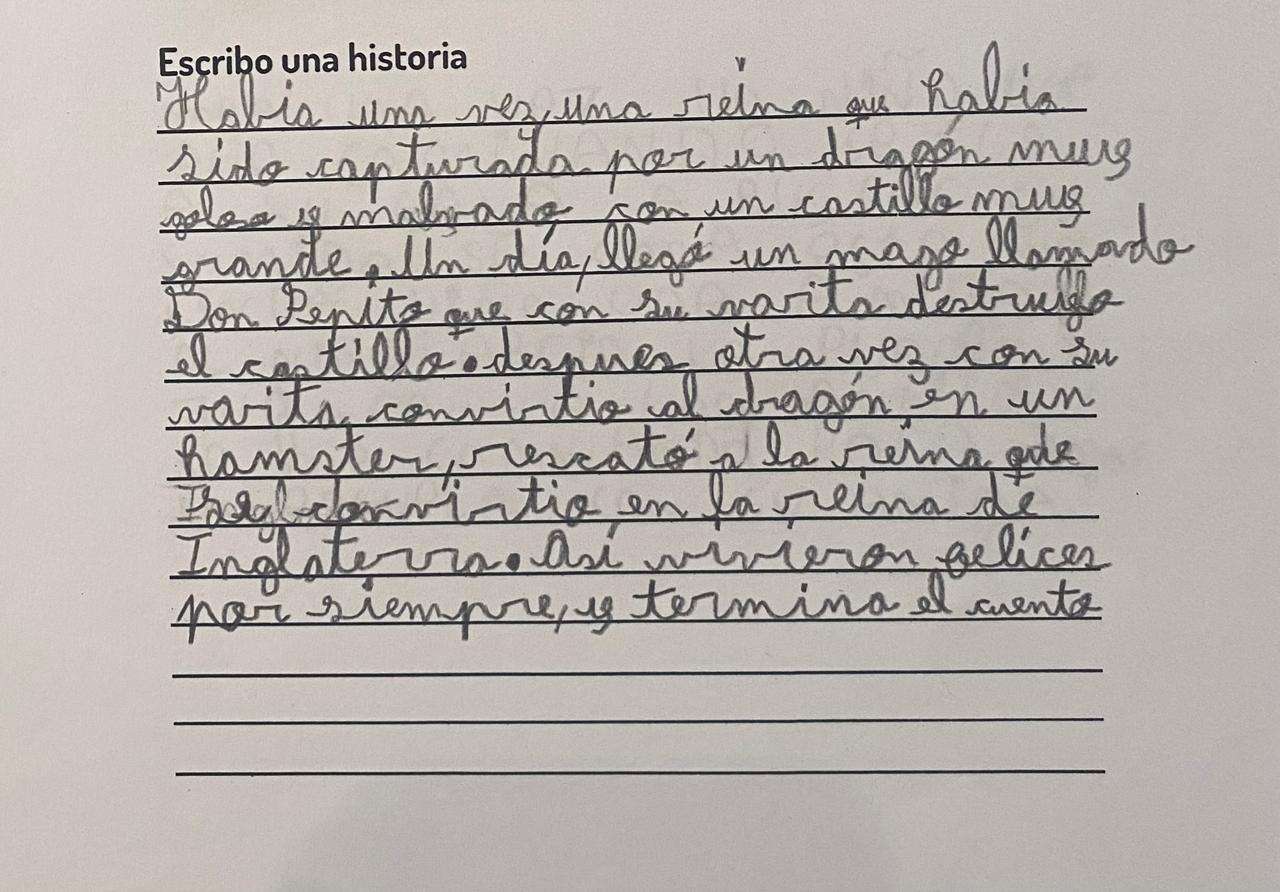 Escribo una historia
Había una vez, una reina que había
sido capturada por un dragón muy
goloso y malvado con un castillo muy
grande. Un día, llegó un mago llamado
Don Pepito que con su varita destruyo
el castillo. despues otra vez con su
varita convirtio al dragón en un
hamster, rescató a la reina que
convirtio en la reina de
Inglaterra. Así vivieron felices
por siempre, y termina el cuento